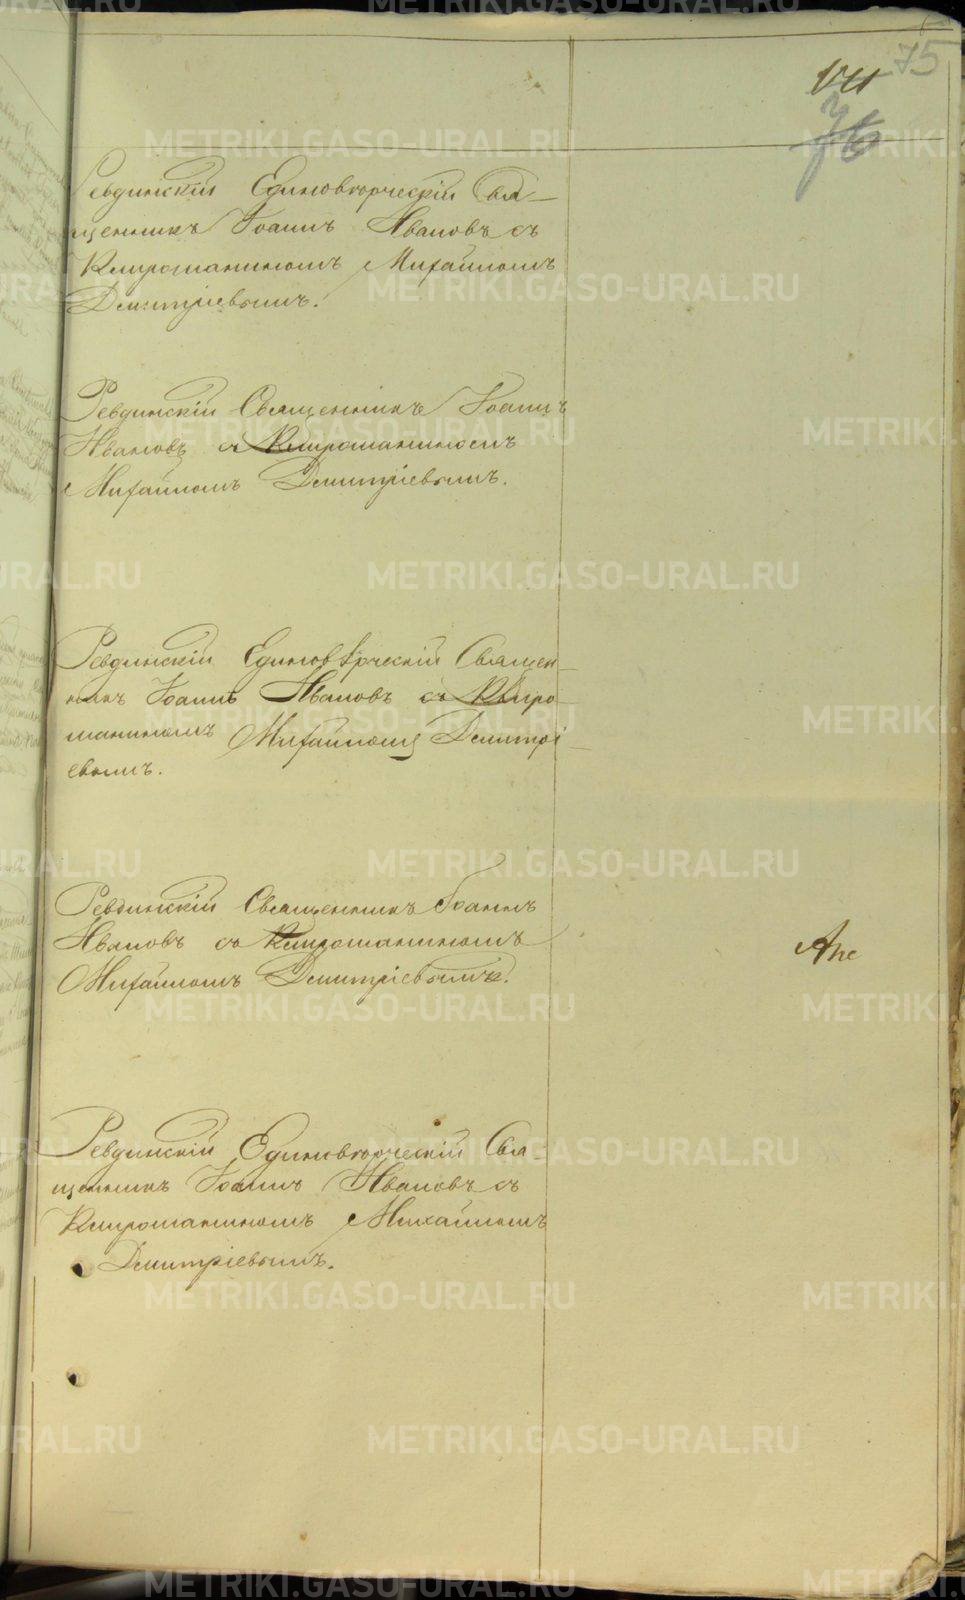 75
76
Ревдинскій Единовѣрческій Свя-
щенникъ Іоаннъ Ивановъ съ
Клирошаниномъ Михайломъ
Дмитріевымъ.
Ревдинскій Священникъ Іоаннъ
Ивановъ съ Клирошаниномъ
Михайломъ Дмитріевымъ.
Ревдинскій Единовѣрческій Священ-
никъ Іоаннъ Ивановъ съ Клиро-
шаниномъ Михайломъ Дмитрі-
евымъ.
Ревдинскій Священникъ Іоаннъ
Ивановъ съ Клирошаниномъ
Михайломъ Дмитріевымъ.
Ревдинскій Единовѣрческій Свя-
щенникъ Іоаннъ Ивановъ съ
Клирошаниномъ Михайломъ
Дмитріевымъ.
METRIKI.GASO-URAL.RU